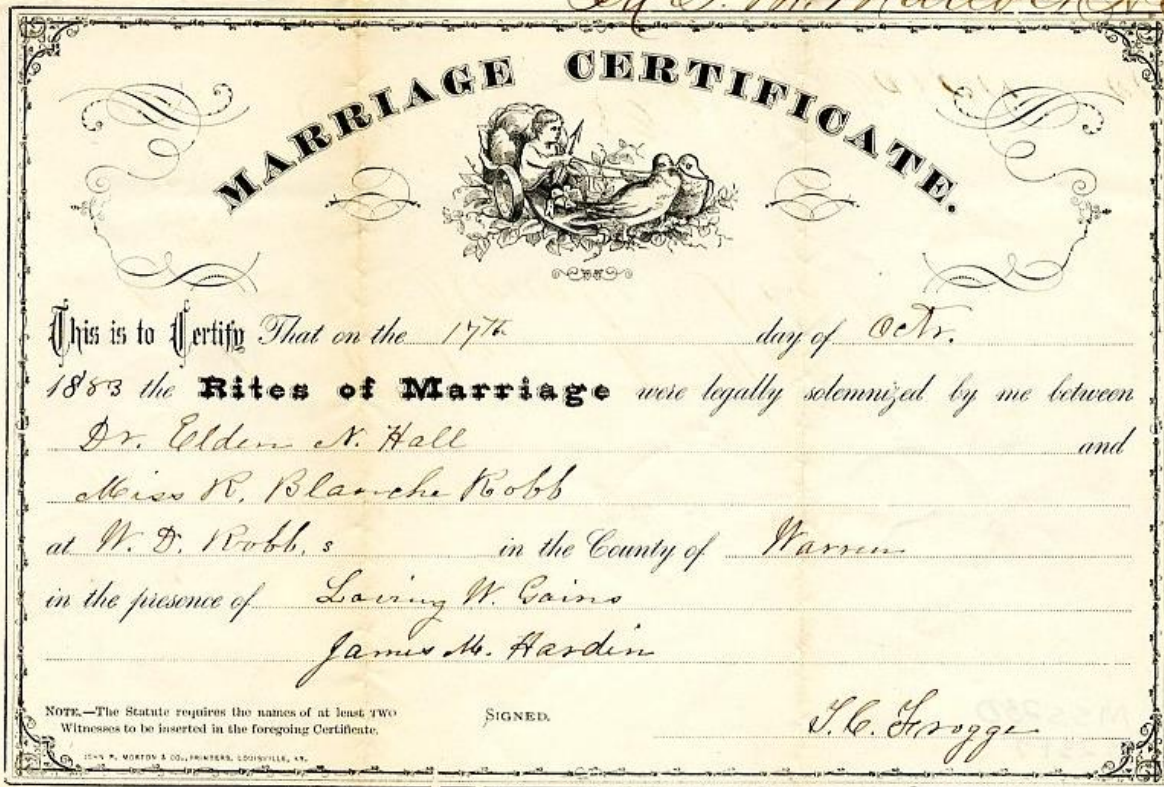 MARRIAGE CERTIFICATE.
This is to Certify That on the 17th day of Octr.
1883 the Rites of Marriage were legally solemnized by me between
Dr. Elden N. Hall and
Miss R. Blanche Robb
at W. D. Robb, s in the County of Warren
in the presence of W. Gains
James M. Hardin
NOTE.—The Statute requires the names of at least TWO
Witnesses to be inserted in the foregoing Certificate.
SIGNED. T. C. Frogge
JOHN P. MORTON & CO., PRINTERS, LOUISVILLE, KY.